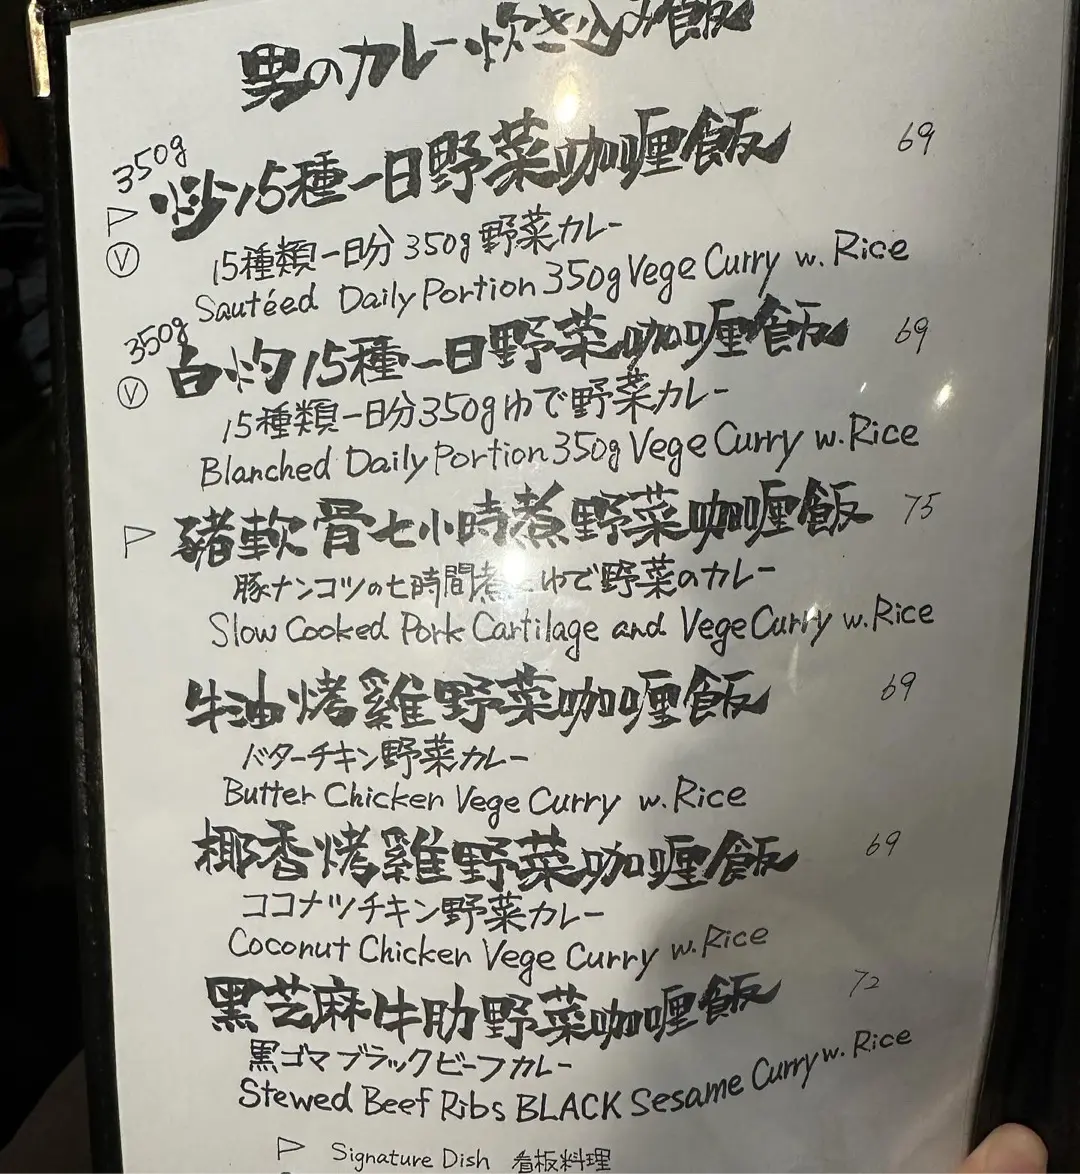 男のカレー炊き込み飯
350g 炒15種一日野菜咖喱飯 69
15種類一日分350g野菜カレー
Ⓥ Sautéed Daily Portion 350g Vege Curry w. Rice
350g 白灼15種一日野菜咖喱飯 69
Ⓥ 15種類一日分350gゆで野菜カレー
Blanched Daily Portion 350g Vege Curry w. Rice
豬軟骨七小時煮野菜咖喱飯 75
豚ナンコツの七時間煮とゆで野菜のカレー
Slow Cooked Pork Cartilage and Vege Curry w. Rice
牛油烤雞野菜咖喱飯 69
バターチキン野菜カレー
Butter Chicken Vege Curry w. Rice
椰香烤雞野菜咖喱飯 69
ココナツチキン野菜カレー
Coconut Chicken Vege Curry w. Rice
黑芝麻牛肋野菜咖喱飯 72
黒ゴマブラックビーフカレー
Stewed Beef Ribs BLACK Sesame Curry w. Rice
Signature Dish 看板料理